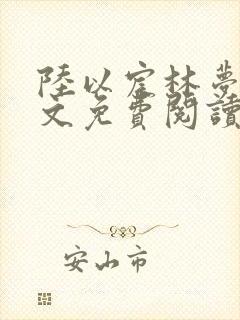 陸以宧林夢
文免費閱讀
安山市